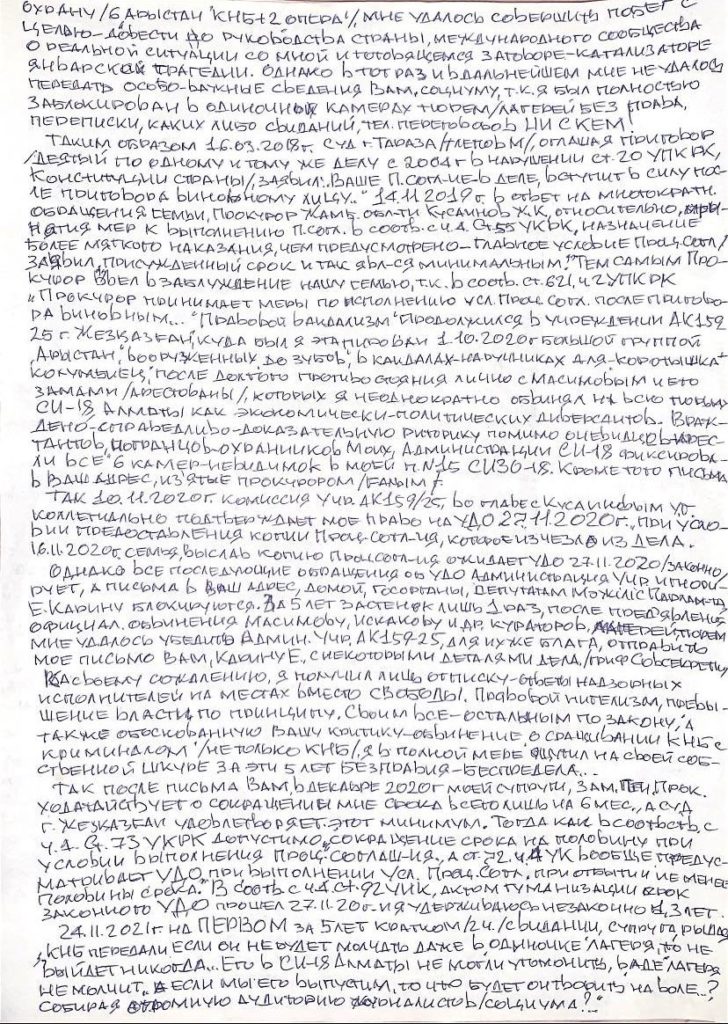 ОХРАНУ /6 АРЫСТАН "КНБ+2 ОПЕРА"/, МНЕ УДАЛОСЬ СОВЕРШИТЬ ПОБЕГ С
ЦЕЛЬЮ-ДОВЕСТИ ДО РУКОВОДСТВА СТРАНЫ, МЕЖДУНАРОДНОГО СООБЩЕСТВА
О РЕАЛЬНОЙ СИТУАЦИИ СО МНОЙ И ГОТОВЯЩЕМСЯ ЗАГОВОРЕ-КАТАЛИЗАТОРЕ
ЯНВАРСКОЙ ТРАГЕДИИ. ОДНАКО В ТОТ РАЗ И В ДАЛЬНЕЙШЕМ МНЕ НЕ УДАЛОСЬ
ПЕРЕДАТЬ ОСОБО-ВАЖНЫЕ СВЕДЕНИЯ ВАМ, СОЦИУМУ, Т.К. Я БЫЛ ПОЛНОСТЬЮ
ЗАБЛОКИРОВАН В ОДИНОЧНОЙ КАМЕРАХ ТЮРЕМ/ЛАГЕРЕЙ БЕЗ ПРАВА,
ПЕРЕПИСКИ, КАКИХ ЛИБО СВИДАНИЙ, ТЕЛ. ПЕРЕГОВОРОВ НИ С КЕМ!
ТАКИМ ОБРАЗОМ 16.03.2018г. СУД г. ТАРАЗА /ТЛЕПОВ М/, ОГЛАШАЯ ПРИГОВОР
/ДЕВЯТЫЙ ПО ОДНОМУ И ТОМУ ЖЕ ДЕЛУ С 2001г В НАРУШЕНИИ СТ. 20 УПК РК,
КОНСТИТУЦИИ СТРАНЫ/ ЗАЯВИЛ: "ВАШЕ П. СОГЛ-ИЕ-В ДЕЛЕ, ВСТУПИТ В СИЛУ ПОС-
ЛЕ ПРИГОВОРА ВИНОВНОМУ ЛИЦУ.." 14.11.2019г. В ОТВЕТ НА МНОГОКРАТН.
ОБРАЩЕНИЯ СЕМЬИ, ПРОКУРОР ЖАМБ. ОБЛ-ТИ КУСАИНОВ Ж.К, ОТНОСИТЕЛЬНО, ПРИ-
НЯТИЯ МЕР К ВЫПОЛНЕНИЮ П. СОГЛ. В СООТВ. С Ч.4. СТ 55 УК РК, НАЗНАЧЕНИЕ
БОЛЕЕ МЯГКОГО НАКАЗАНИЯ, ЧЕМ ПРЕДУСМОТРЕНО-ГЛАВНОЕ УСЛОВИЕ ПРОЦ. СОГЛ/
ЗАЯВИЛ, "ПРИСУЖДЕННЫЙ СРОК И ТАК ЯВЛ-СЯ МИНИМАЛЬНЫМ". ТЕМ САМЫМ ПРО-
КУРОР ВВЕЛ В ЗАБЛУЖДЕНИЕ НАШУ СЕМЬЮ, Т.К. В СООТВ. СТ. 621, Ч.2 УПК РК
"ПРОКУРОР ПРИНИМАЕТ МЕРЫ ПО ИСПОЛНЕНИЮ УСЛ. ПРОЦ. СОГЛ. ПОСЛЕ ПРИГОВО-
РА ВИНОВНЫМ..." "ПРАВОВОЙ ВАНДАЛИЗМ" ПРОДОЛЖИЛСЯ В УЧРЕЖДЕНИИ АК 159
25 г. ЖЕЗКАЗГАН, КУДА БЫЛ Я ЭТАПИРОВАН 1.10.2020г БОЛЬШОЙ ГРУППОЙ
"АРЫСТАН", ВООРУЖЕННЫХ, ДО ЗУБОВ, В КАНДАЛАХ-НАРУЧНИКАХ ДЛЯ "КОРОТЫШКА
КОЛУМБИЕЦ", ПОСЛЕ ДОЛГОГО ПРОТИВОСТОЯНИЯ ЛИЧНО С МАСИМОВЫМ И ЕГО
ЗАМАМИ /АРЕСТОВАНЫ/, КОТОРЫХ Я НЕОДНОКРАТНО ОБВИНЯЛ НА ВСЮ ТЮРЬМУ
СИ-18, АЛМАТЫ КАК ЭКОНОМИЧЕСКИ-ПОЛИТИЧЕСКИХ ДИВЕРСАНТОВ. ВРАЖ-
ДЕНО-СПРАВЕДЛИВО-ДОКАЗАТЕЛЬНУЮ РИТОРИКУ ПОМИМО ОЧЕВИДЦЕВ АРЕС-
ТАНТОВ, ПОГРАНЦОВ-ОХРАННИКОВ МОИХ, АДМИНИСТРАЦИИ СИ-18 ФИКСИРОВА-
ЛИ ВСЕ 6 КАМЕР-НЕВИДИМОК В МОЕЙ К. №15 СИЗО-18. КРОМЕ ТОГО ПИСЬМА
В ВАШ АДРЕС, ИЗ'ЯТЫЕ ПРОКУРОРОМ
ТАК 10.11.2020г. КОМИССИЯ УЧР. АК 159/25, ВО ГЛАВЕ С КУСАИНОВЫМ
КОЛЛЕГИАЛЬНО ПОДТВЕРЖДАЕТ МОЕ ПРАВО НА УДО 27.11.2020г. ПРИ УСЛО-
ВИИ ПРЕДОСТАВЛЕНИЯ КОПИИ ПРОЦ-СОГЛ-ИЯ, КОТОРОЕ ИСЧЕЗЛО ИЗ ДЕЛА.
16.11.2020г. СЕМЬЯ, ВЫСЛАВ КОПИЮ ПРОЦ. СОГЛ-ИЯ ОЖИДАЕТ УДО 27.11.2020 /ЗАКОННО/
ОДНАКО ВСЕ ПОСЛЕДУЮЩИЕ ОБРАЩЕНИЯ ОБ УДО АДМИНИСТРАЦИЯ УЧР. ИГНОРИ-
РУЕТ, А ПИСЬМА В ВАШ АДРЕС, ДОМОЙ, ГОСОРГАНЫ, ДЕПУТАТАМ МӘЖІЛІС ПАРЛАМ-ТА,
Е. КАРИНУ БЛОКИРУЮТСЯ. ЗА 5 ЛЕТ ЗАСТЕНОК ЛИШЬ 1 РАЗ, ПОСЛЕ ПРЕД'ЯВЛЕНИЯ
ОФИЦИАЛ. ОБВИНЕНИЯ МАСИМОВУ, ИСКАКОВУ И ДР. КУРАТОРОВ, ЛАГЕРЕЙ, ТЮРЕМ
МНЕ УДАЛОСЬ УБЕДИТЬ АДМИН. УЧР. АК 159-25, ДЛЯ ИХ ЖЕ БЛАГА, ОТПРАВИТЬ
МОЕ ПИСЬМО ВАМ, КАРИНУ Е. С НЕКОТОРЫМИ ДЕТАЛЯМИ ДЕЛА /ГРИФ СОВ СЕКРЕТНО/
К СВОЕМУ СОЖАЛЕНИЮ, Я ПОЛУЧИЛ ЛИШЬ ОТПИСКУ-ОТВЕТЫ НАДЗОРНЫХ
ИСПОЛНИТЕЛЕЙ НА МЕСТАХ ВМЕСТО СВОБОДЫ. ПРАВОВОЙ НИГЕЛИЗМ, ПРЕВЫ-
ШЕНИЕ ВЛАСТИ, ПО ПРИНЦИПУ. СВОИМ ВСЕ-ОСТАЛЬНЫМ ПО ЗАКОНУ", А
ТАКЖЕ ОБОСНОВАННУЮ ВАШУ КРИТИКУ-ОБВИНЕНИЕ О СРАЩИВАНИИ КНБ С
КРИМИНАЛОМ /НЕ ТОЛЬКО КНБ/, Я В ПОЛНОЙ МЕРЕ ОЩУТИЛ НА СВОЕЙ СОБ-
СТВЕННОЙ ШКУРЕ ЗА ЭТИ 5 ЛЕТ БЕЗПРАВИЯ-БЕСПРЕДЕЛА...
ТАК ПОСЛЕ ПИСЬМА ВАМ, В ДЕКАБРЕ 2020г МОЕЙ СУПРУГИ, ЗАМ. ГЕН. ПРОК.
ХОДАТАЙСТВУЕТ О СОКРАЩЕНИИ МНЕ СРОКА ВСЕГО ЛИШЬ НА 6 МЕС., А СУД
г. ЖЕЗКАЗГАН УДОВЛЕТВОРЯЕТ ЭТОТ МИНИМУМ. ТОГДА КАК В СООТВСТВ, С
Ч.1. СТ. 73 УК РК ДОПУСТИМО "СОКРАЩЕНИЕ СРОКА НА ПОЛОВИНУ ПРИ
УСЛОВИИ ВЫПОЛНЕНИЯ ПРОЦ. СОГЛАШ-ИЯ, А СТ. 72 Ч.4 УК ВООБЩЕ ПРЕДУС-
МАТРИВАЕТ УДО ПРИ ВЫПОЛНЕНИИ УСЛ. ПРОЦ. СОГЛ. ПРИ ОТБЫТИИ НЕ МЕНЕЕ
ПОЛОВИНЫ СРОКА". В СООТВ С Ч.4 СТ. 92 УИК, АКТОМ ГУМАНИЗАЦИИ СРОК
ЗАКОННОГО УДО ПРОШЕЛ 27.11.20г. И Я УДЕРЖИВАЮСЬ НЕЗАКОННО 1,3 ЛЕТ.
24.11.2021г. НА ПЕРВОМ ЗА 5 ЛЕТ КРАТКОМ /2ч./ СВИДАНИИ, СУПРУГА РЫДАЯ
"КНБ ПЕРЕДАЛИ ЕСЛИ ОН НЕ БУДЕТ МОЛЧАТЬ ДАЖЕ В ОДИНОЧКЕ ЛАГЕРЯ, ТО НЕ
ВЫЙДЕТ НИКОГДА... ЕГО В СИ-18 АЛМАТЫ НЕ МОГЛИ УГОМОНИТЬ, В АДЕ ЛАГЕРЯ
НЕ МОЛЧИТ, А ЕСЛИ МЫ ЕГО ВЫПУСТИМ, ТО ЧТО БУДЕТ ОН ТВОРИТЬ НА ВОЛЕ..?
СОБИРАЯ ОГРОМНУЮ АУДИТОРИЮ ЖУРНАЛИСТОВ/СОЦИУМА?"